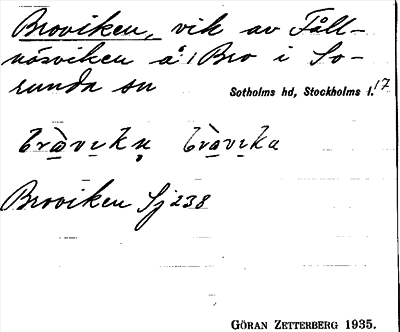 Broviken, vik av Fåll-
näsviken å! Bro i So-
runda sn
Sotholms hd, Stockholms l. 17
Broviken Sj 238
GÖRAN ZETTERBERG 1935.